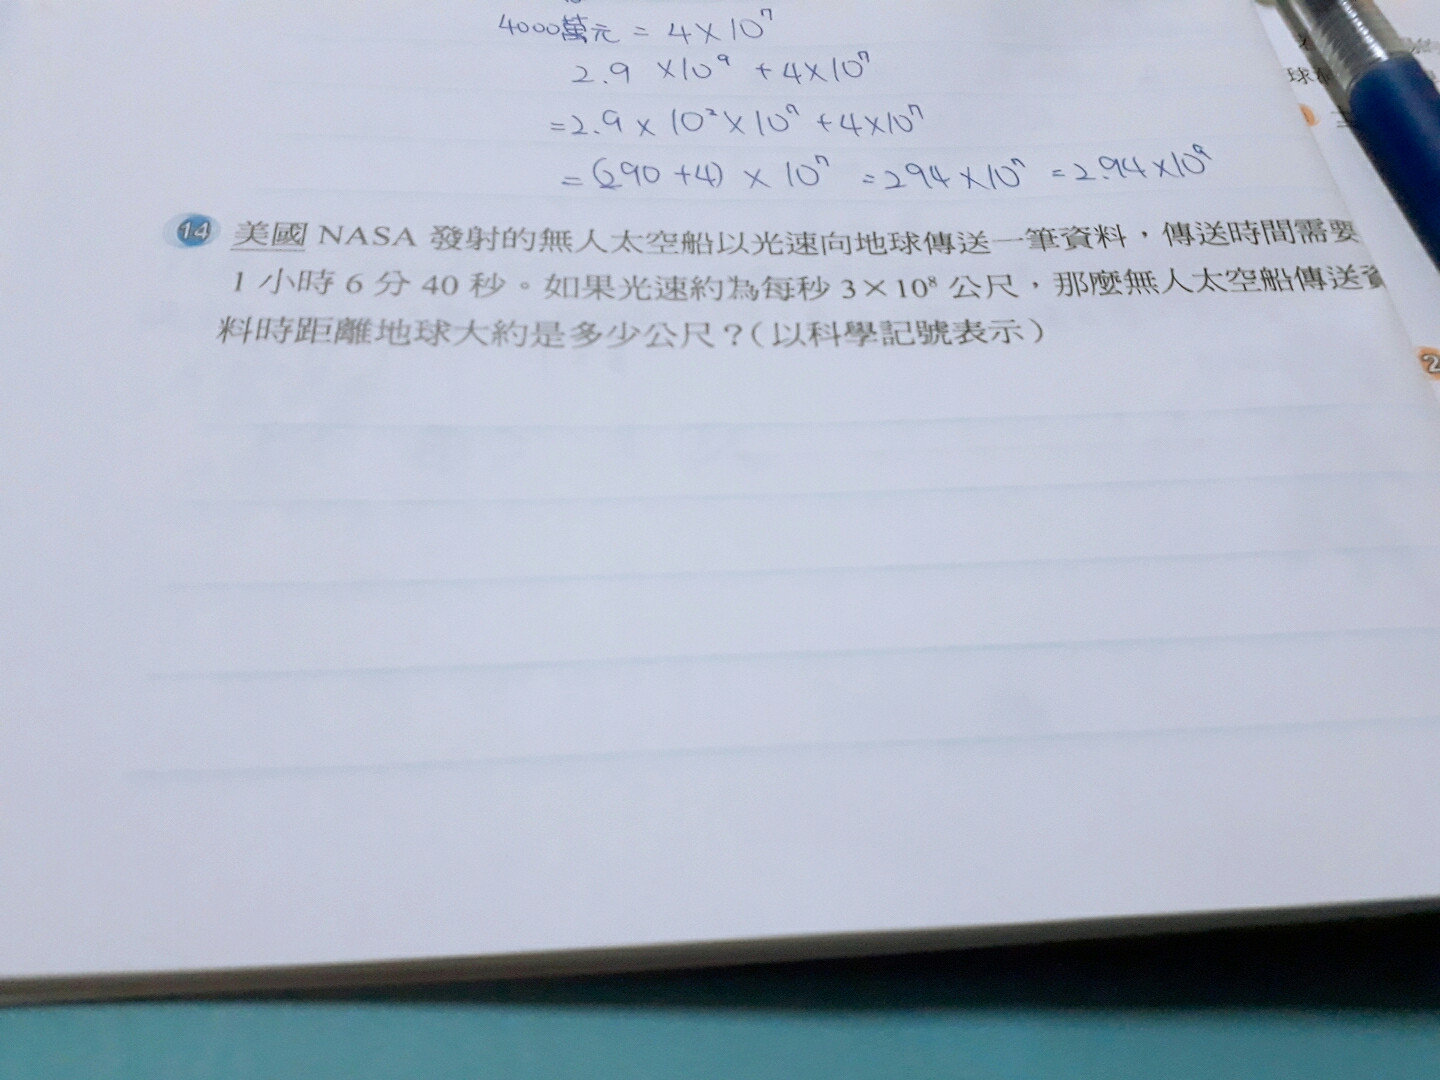 4000萬元 = 4×10⁷
2.9 ×10⁹ +4×10⁷
=2.9 × 10²×10⁷ +4×10⁷
= (290 +4) × 10⁷ =294×10⁷ = 2.94×10⁹
14 美國 NASA 發射的無人太空船以光速向地球傳送一筆資料，傳送時間需要
1 小時 6 分 40 秒。如果光速約為每秒 3×10⁸ 公尺，那麼無人太空船傳送資
料時距離地球大約是多少公尺？（以科學記號表示）
球
2